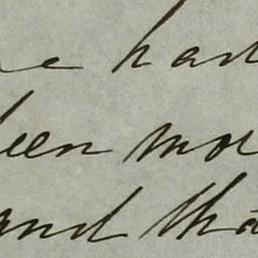 had
been mo
and tha